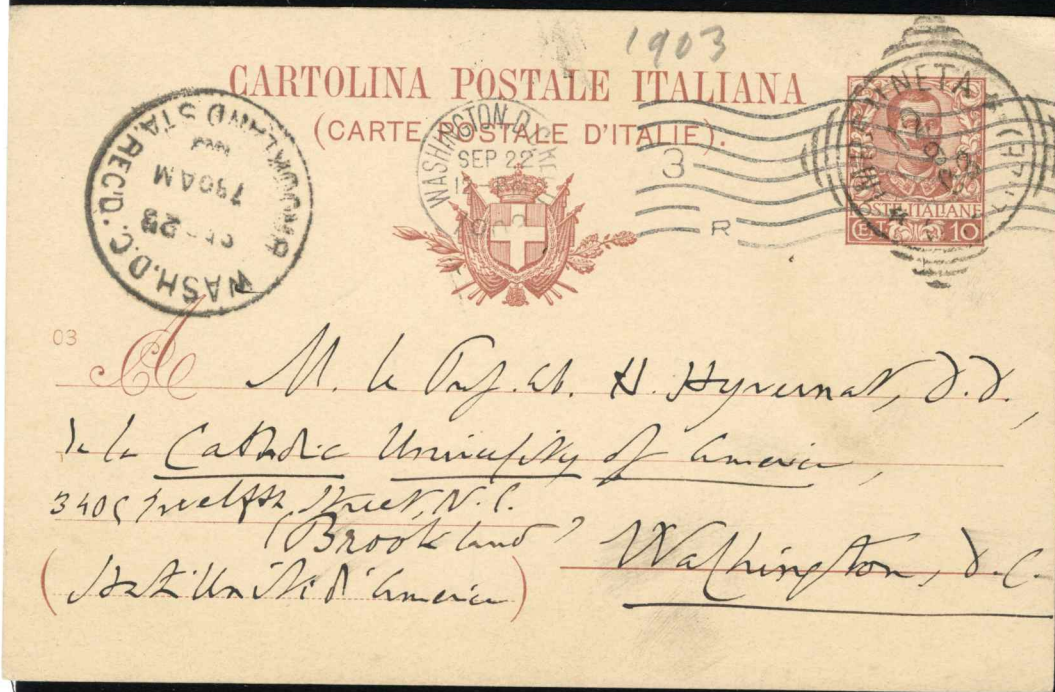 1903
CARTOLINA POSTALE ITALIANA
(CARTE POSTALE D'ITALIE).
WASHINGTON, D.C.
SEP 22
3
R
POSTE ITALIANE
10
WASH. D.C. BROOKLAND STA. REC'D.
23
7 30 AM
1903
03
A M. le Prof. ab. H. Hyvernat, D.D.,
de la Catholic University of America,
3405 Twelfth Street, N.E.
(Brookland)
Washington, D.C.
(Stati Uniti d'America)